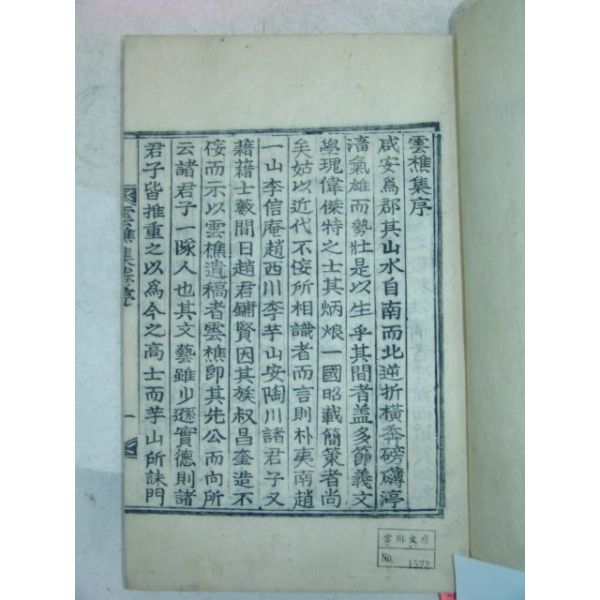 雲樵集序
咸安爲郡其山水自南而北逆折橫奔磅礴渟
滀氣雄而勢壯是以生乎其間者盖多節義文
學瑰偉傑特之士其炳烺一國昭載簡策者尚
矣姑以近代不侫所相識者而言則朴夷南趙
一山李信庵趙西川李芋山安陶川諸君子又
藉藉士藪間日趙君鏞賢因其族叔昌奎造不
侫而示以雲樵遺稿者雲樵卽其先公而向所
云諸君子一隊人也其文藝雖少遜實德則諸
君子皆推重之以爲今之高士而芋山所誄門
雲樵集卷序
一
No. 1572